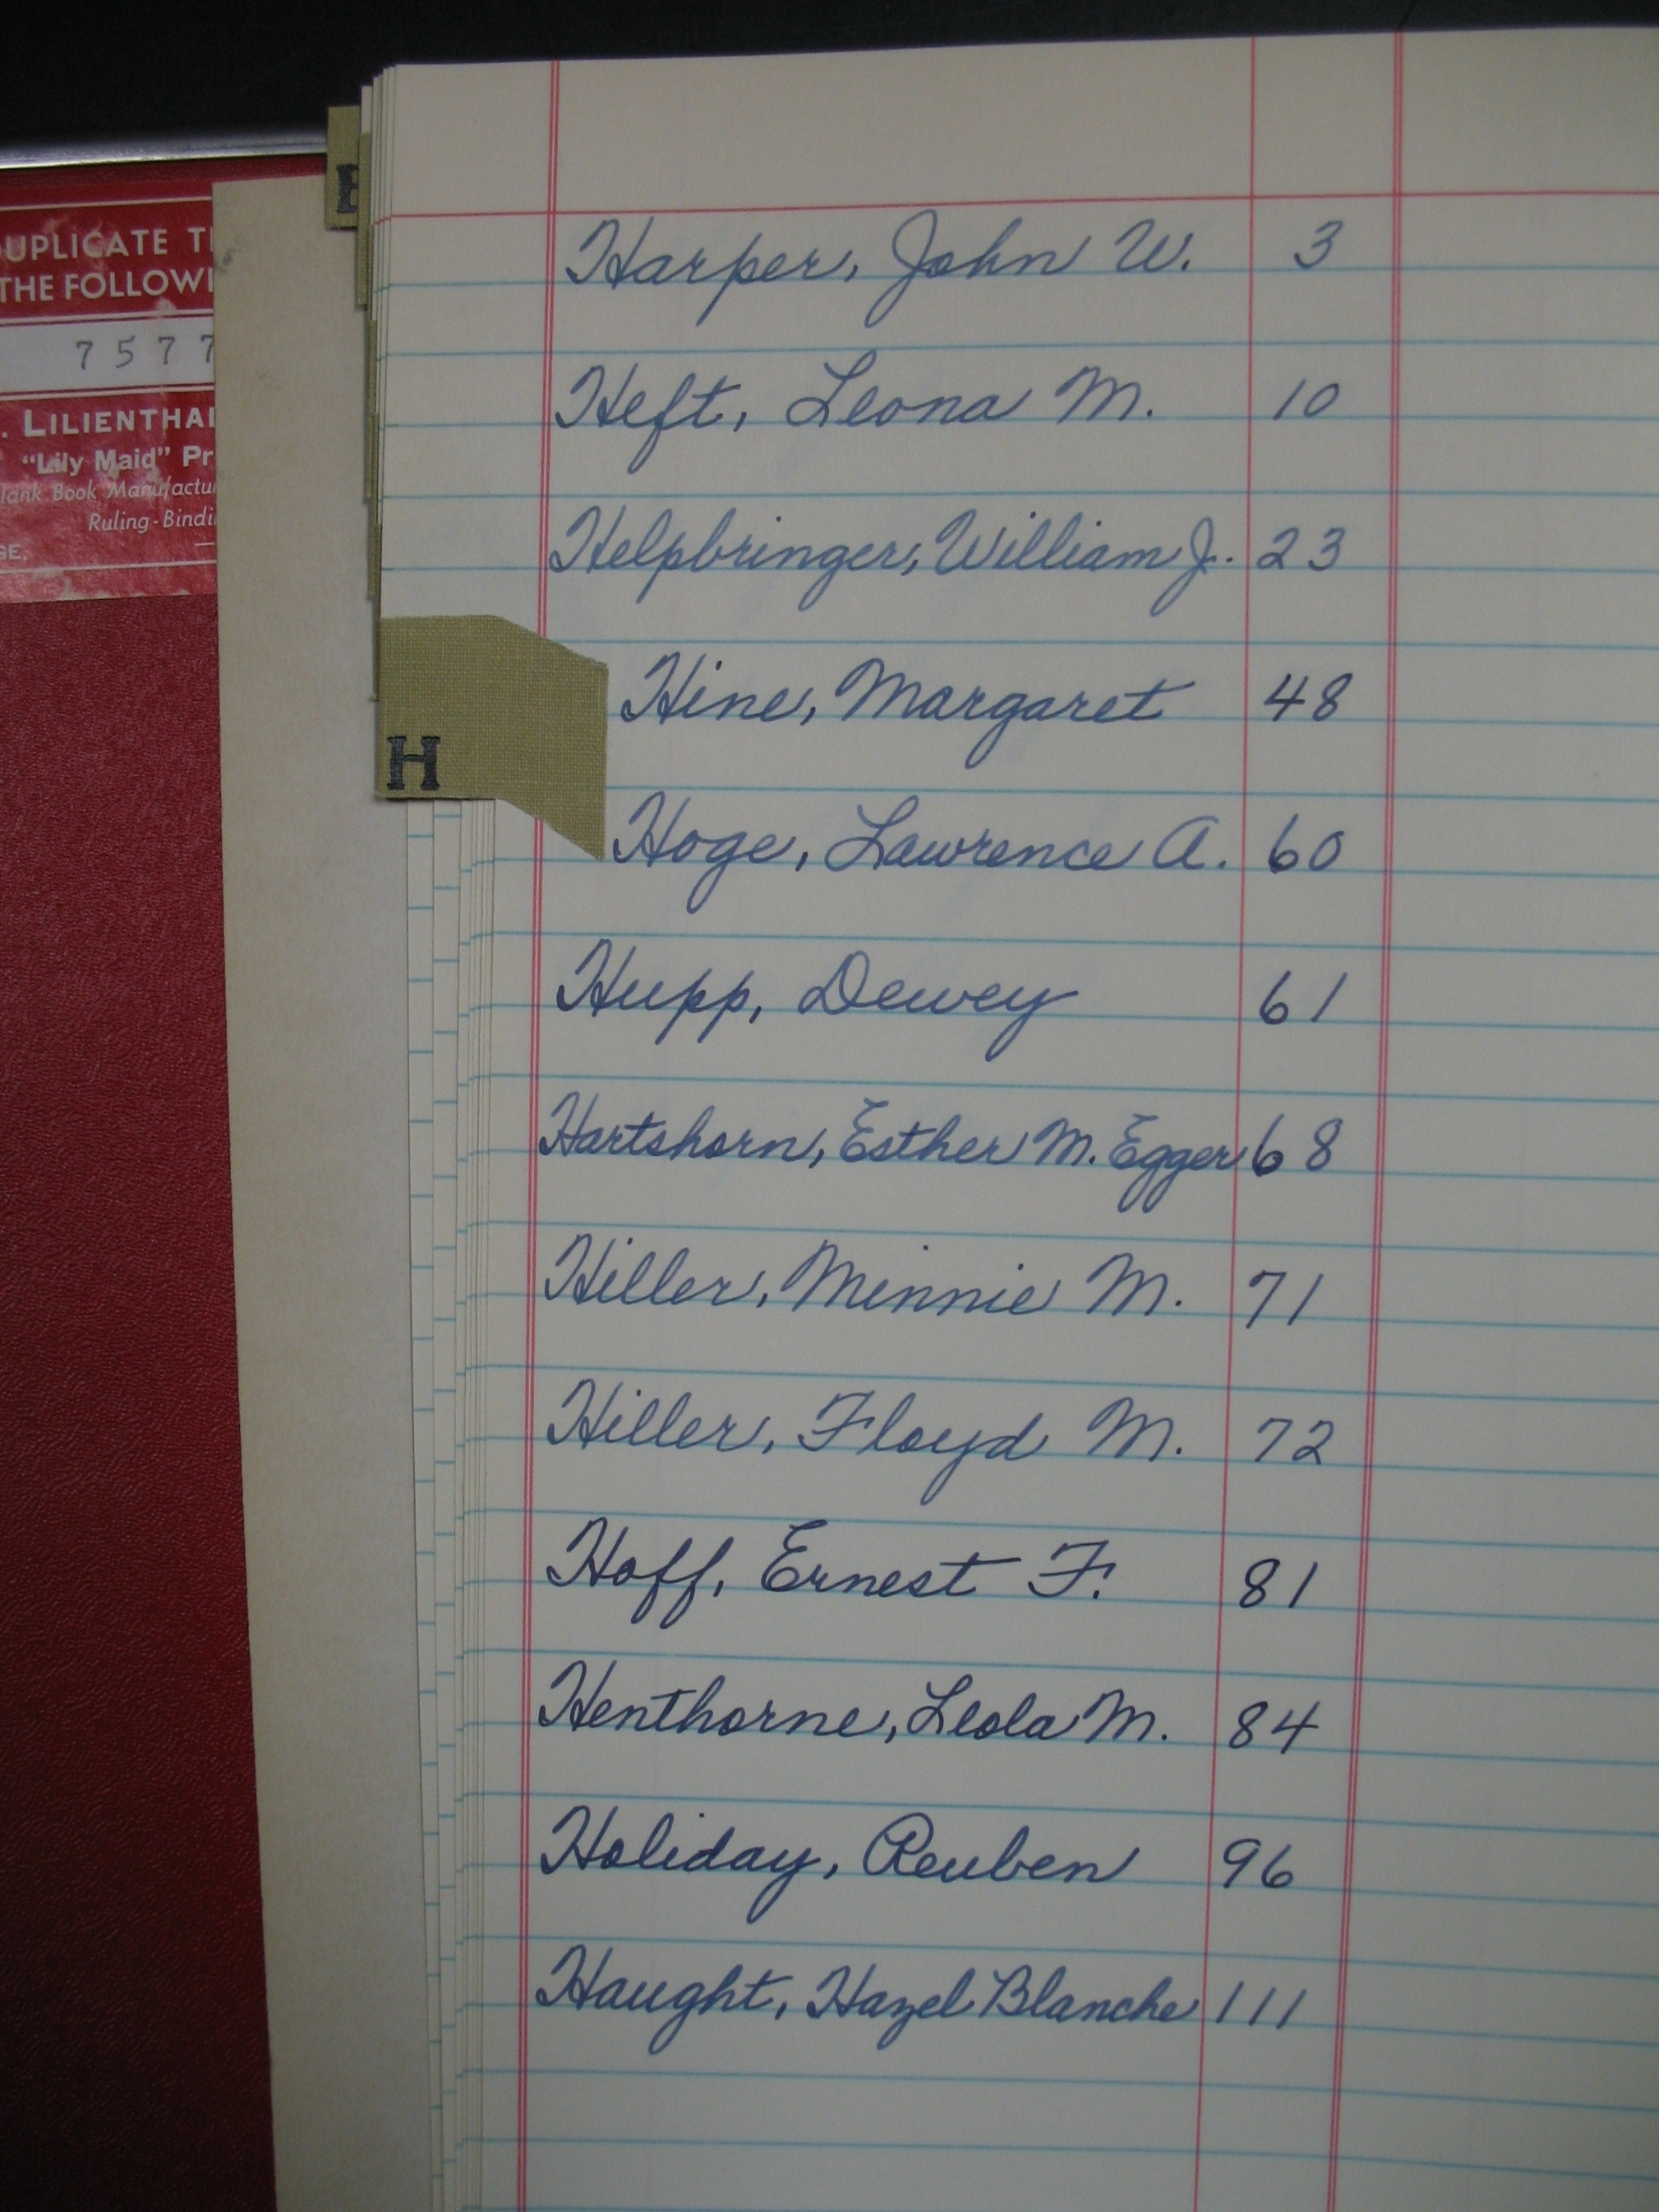 DUPLICATE
THE
7577
LILIENTHAL
"Lily Maid"
Book
Ruling-
H
Harper, John W. 3
Heft, Leona M. 10
Helpbringer, William J. 23
Hine, Margaret 48
Hoge, Lawrence A. 60
Hupp, Dewey 61
Hartshorn, Esther M. Egger 68
Hiller, Minnie M. 71
Hiller, Floyd M. 72
Hoff, Ernest F. 81
Henthorne, Leola M. 84
Holiday, Reuben 96
Haught, Hazel Blanche 111